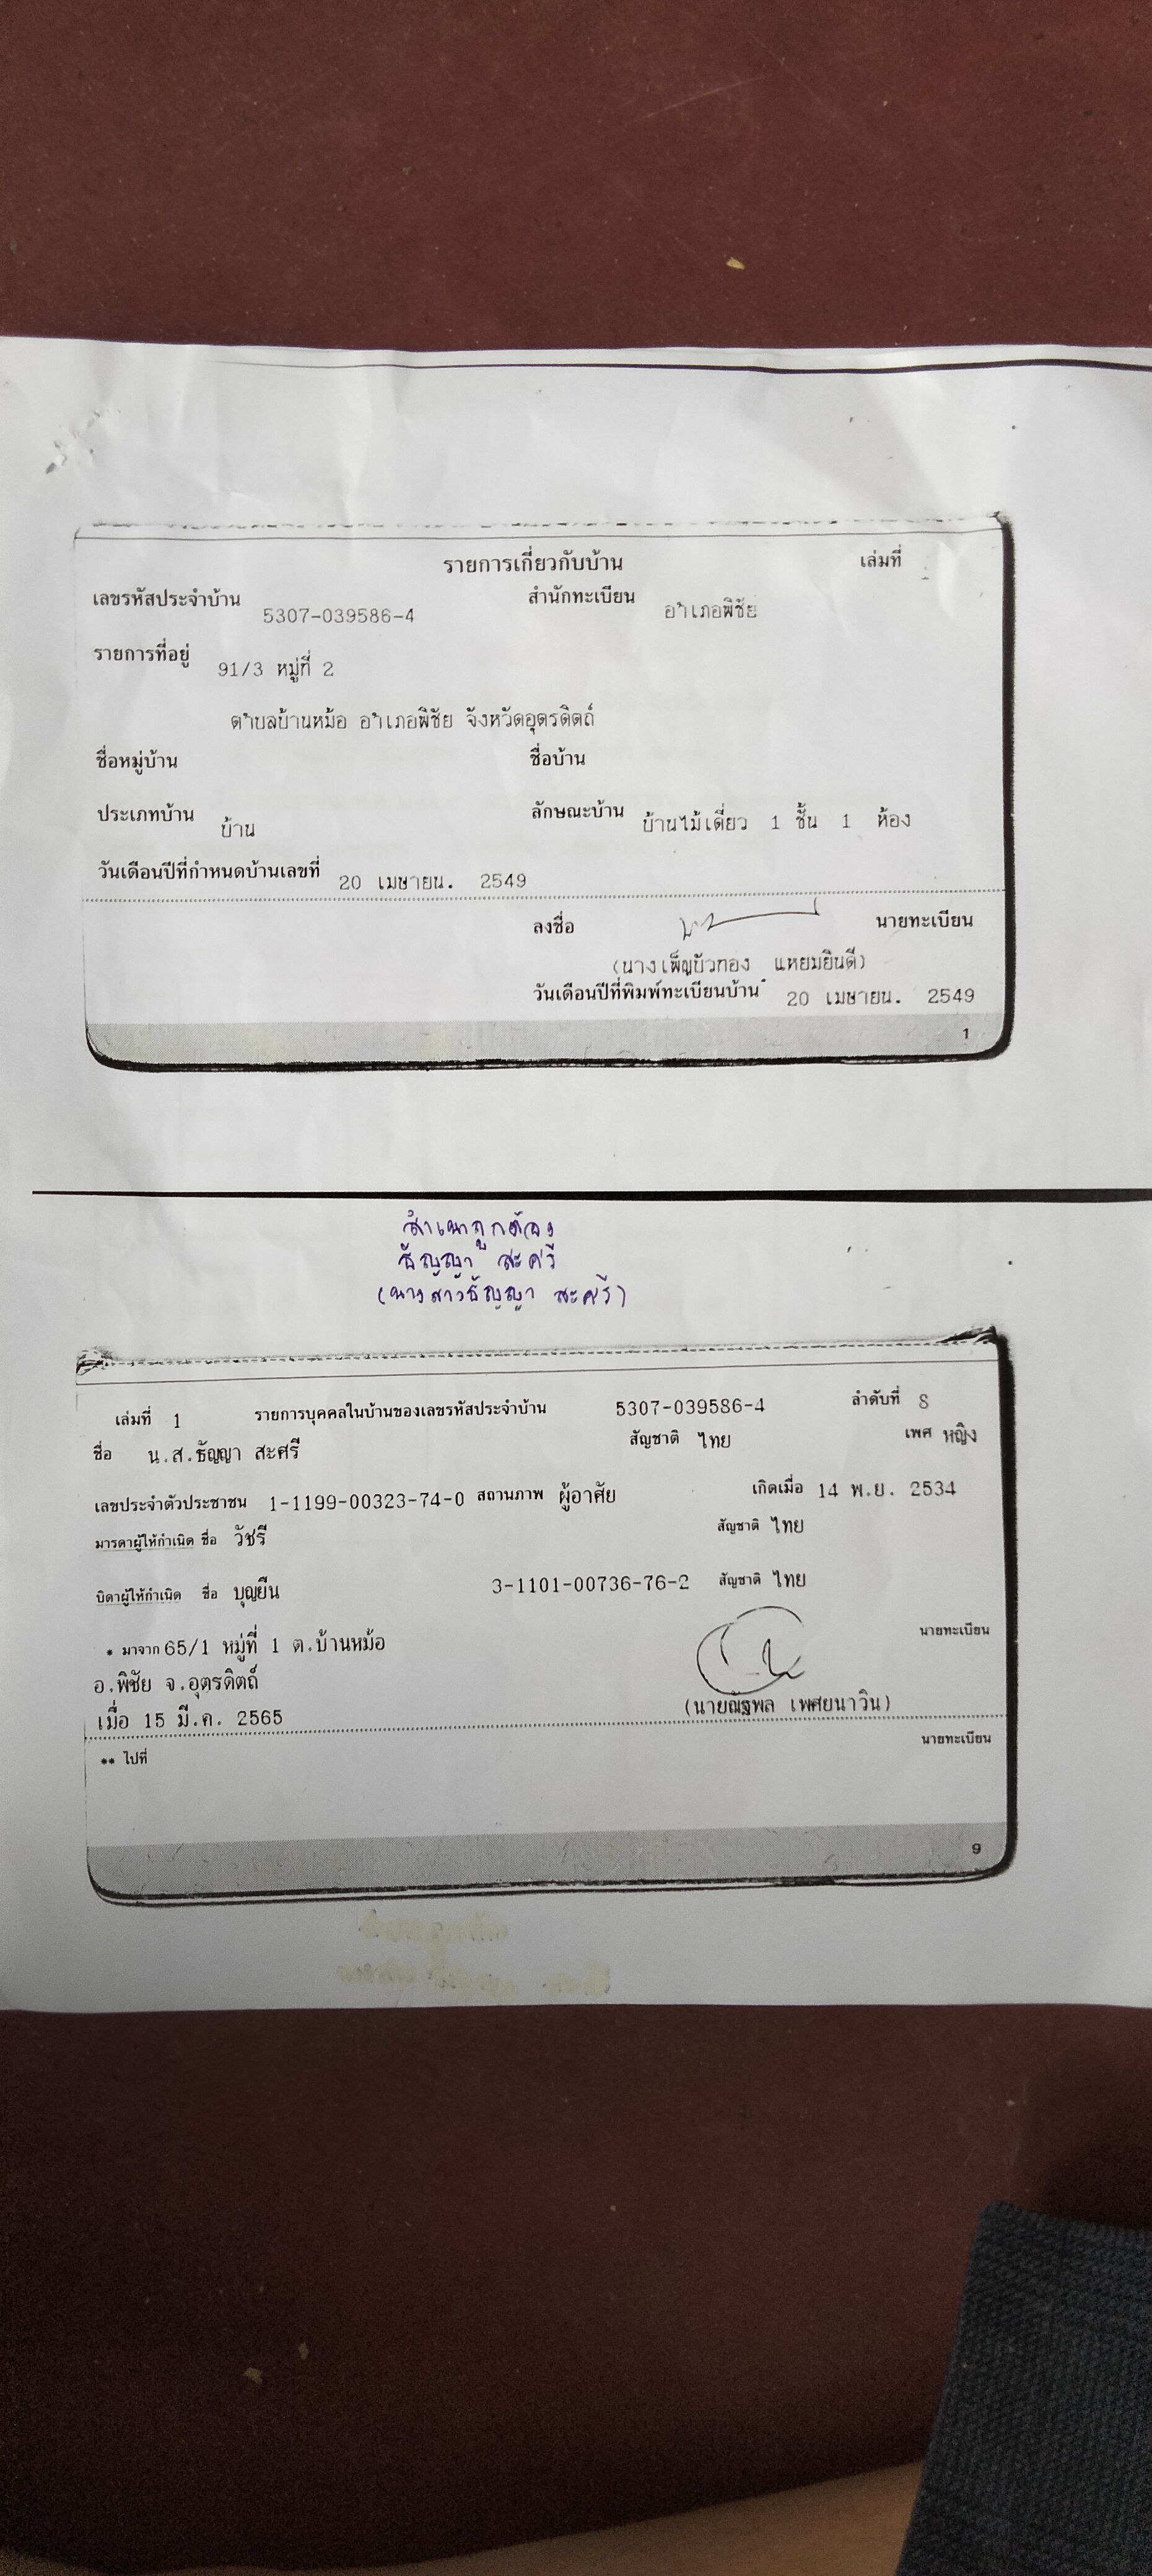 รายการเกี่ยวกับบ้าน เล่มที่
เลขรหัสประจำบ้าน 5307-039586-4 สำนักทะเบียน อำเภอพิชัย
รายการที่อยู่ 91/3 หมู่ที่ 2
ตำบลบ้านหม้อ อำเภอพิชัย จังหวัดอุตรดิตถ์
ชื่อหมู่บ้าน ชื่อบ้าน
ประเภทบ้าน บ้าน ลักษณะบ้าน บ้านไม้เดี่ยว 1 ชั้น 1 ห้อง
วันเดือนปีที่กำหนดบ้านเลขที่ 20 เมษายน. 2549
ลงชื่อ นายทะเบียน
(นางเพ็ญบัวทอง แหยมยินดี)
วันเดือนปีที่พิมพ์ทะเบียนบ้าน 20 เมษายน. 2549
1
สำเนาถูกต้อง
ธัญญา สะศรี
(นางสาวธัญญา สะศรี)
เล่มที่ 1 รายการบุคคลในบ้านของเลขรหัสประจำบ้าน 5307-039586-4 ลำดับที่ 8
ชื่อ น.ส.ธัญญา สะศรี สัญชาติ ไทย เพศ หญิง
เลขประจำตัวประชาชน 1-1199-00323-74-0 สถานภาพ ผู้อาศัย เกิดเมื่อ 14 พ.ย. 2534
มารดาผู้ให้กำเนิด ชื่อ วัชรี สัญชาติ ไทย
บิดาผู้ให้กำเนิด ชื่อ บุญยืน 3-1101-00736-76-2 สัญชาติ ไทย
* มาจาก 65/1 หมู่ที่ 1 ต.บ้านหม้อ นายทะเบียน
อ.พิชัย จ.อุตรดิตถ์
เมื่อ 15 มี.ค. 2565 (นายณัฐพล เพศยนาวิน)
** ไปที่ นายทะเบียน
9